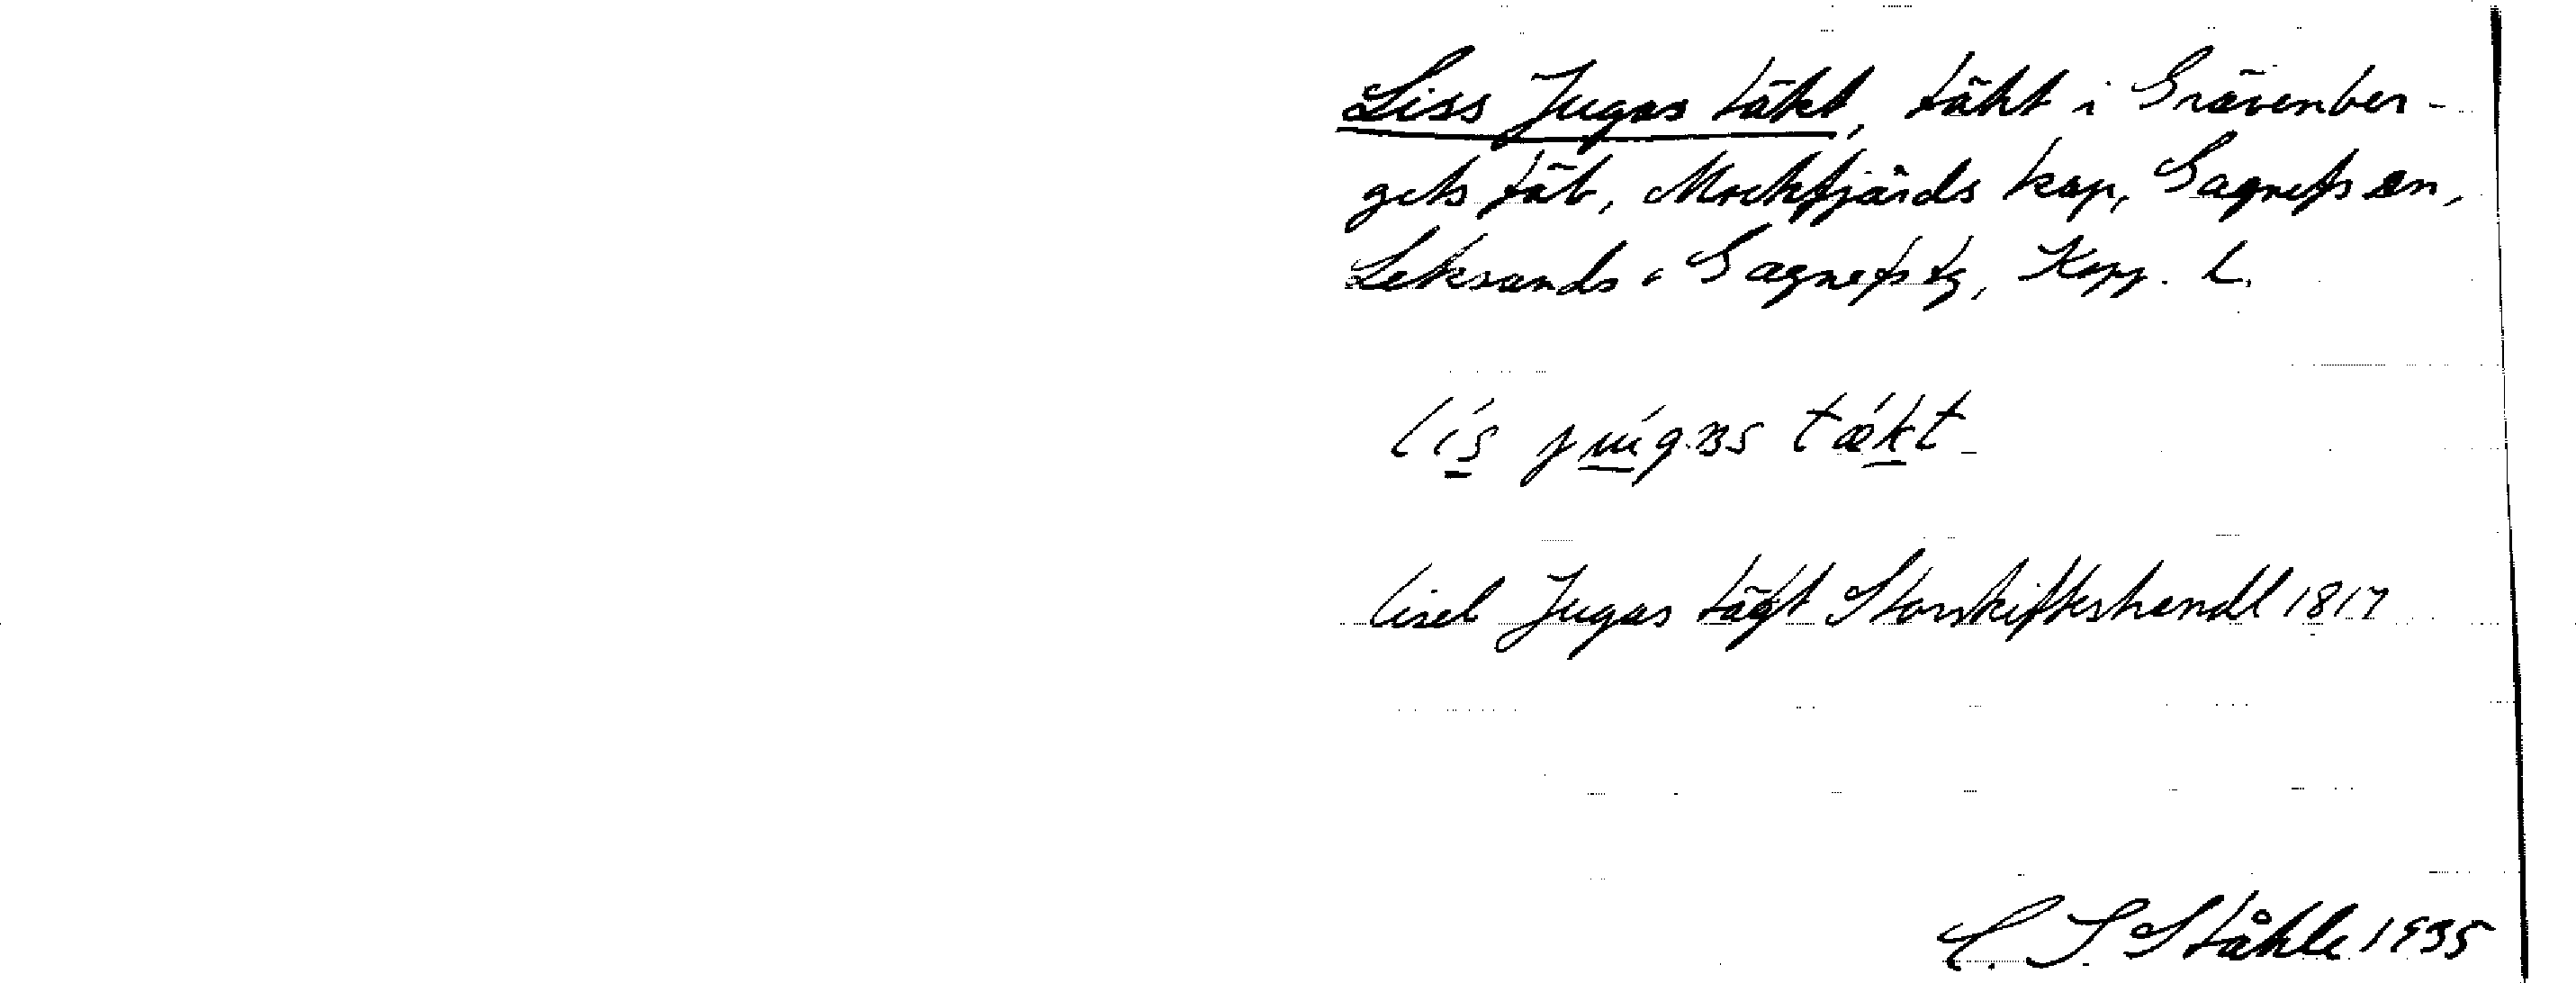 Liss Jugas täkt, täkt i Grävenber-
gets fäb, Mockfjärds kap, Gagnefs sn,
Leksands o Gagnefs tg, Kopp. l.
lís júgas tǽkt
lisel Jugas tägt Storskifteshandl 1817
C. I. Ståhle 1935